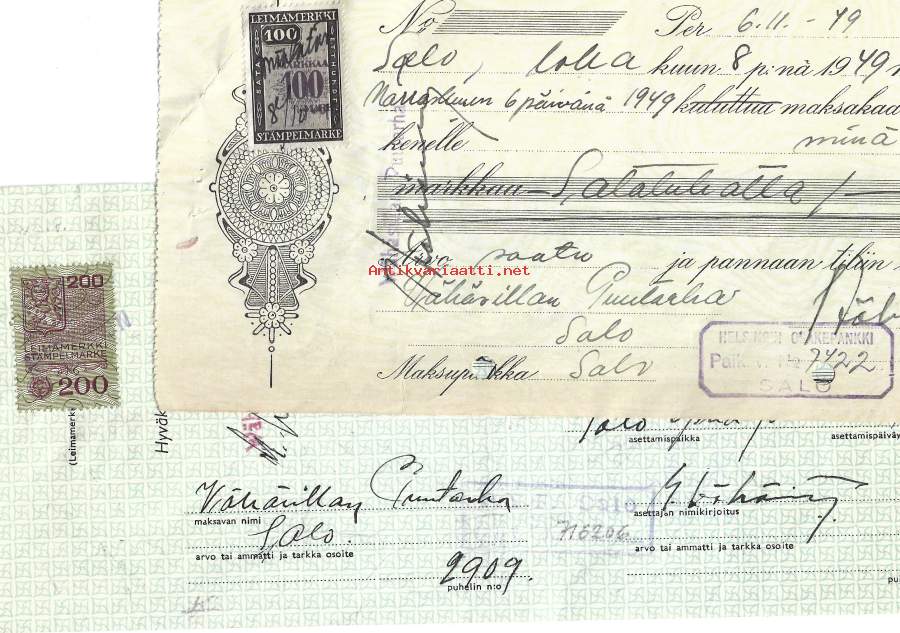 LEIMAMERKKI
100
MARKKAA
100
STÄMPELMARKE
No Per 6.11 - 49
Salo, loka kuun 8 p:nä 1949
Marraskuun 6 päivänä 1949 kuluttua maksakaa
kenelle minä
markkaa — Satatuhatta / —
Arvo saatu ja pannaan tiliin
Vähävillan Puutarha
Salo
Maksupaikka Salo
HELSINGIN OSAKEPANKKI
Paik. v. No 7422
SALO
Antikvariaatti.net
200
LEIMAMERKKI
STÄMPELMARKE
200
(Leimamerke
Hyväk
Salo
asettamispaikka asettamispäiväy
Vähävillan Puutarha
maksavan nimi
asettajan nimikirjoitus
Salo.
716206
arvo tai ammatti ja tarkka osoite
arvo tai ammatti ja tarkka osoite
2909.
puhelin n:o
pu